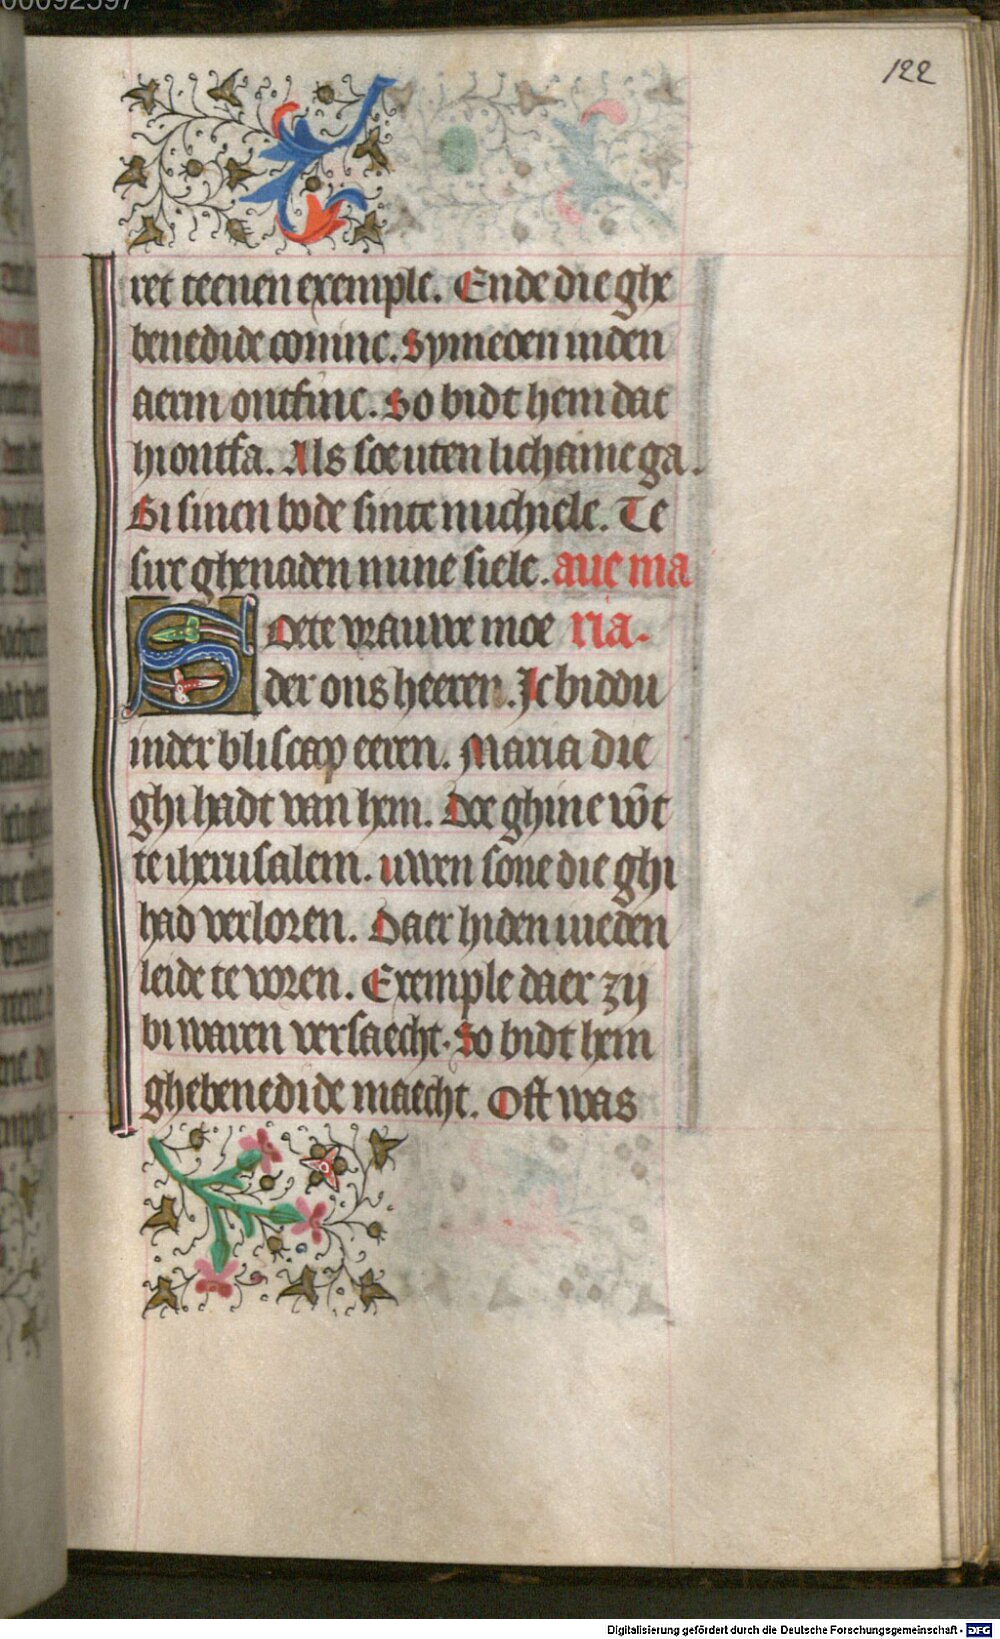 122
ret teenen exemple. Ende die ghe
benedide coninc. Symeoen inden
aerm ontfinc. So bidt hem dat
hi ontfa. Als soe uten lichame ga.
Bi sinen bode sinte michiele. Te
sire ghenaden mine siele. aue ma
Soete vrauwe moe ria.
der ons heeren. Ic biddu
inder bliscap eeren. Maria die
ghi hadt van hem. Doe ghine vōt
te iherusalem. uwen sone die ghi
had verloren. Daer hi den iueden
leide te voren. Exemple daer zij
bi waren versaecht. So bidt hem
ghebenedide maecht. Oft was
Digitalisierung gefördert durch die Deutsche Forschungsgemeinschaft - DFG